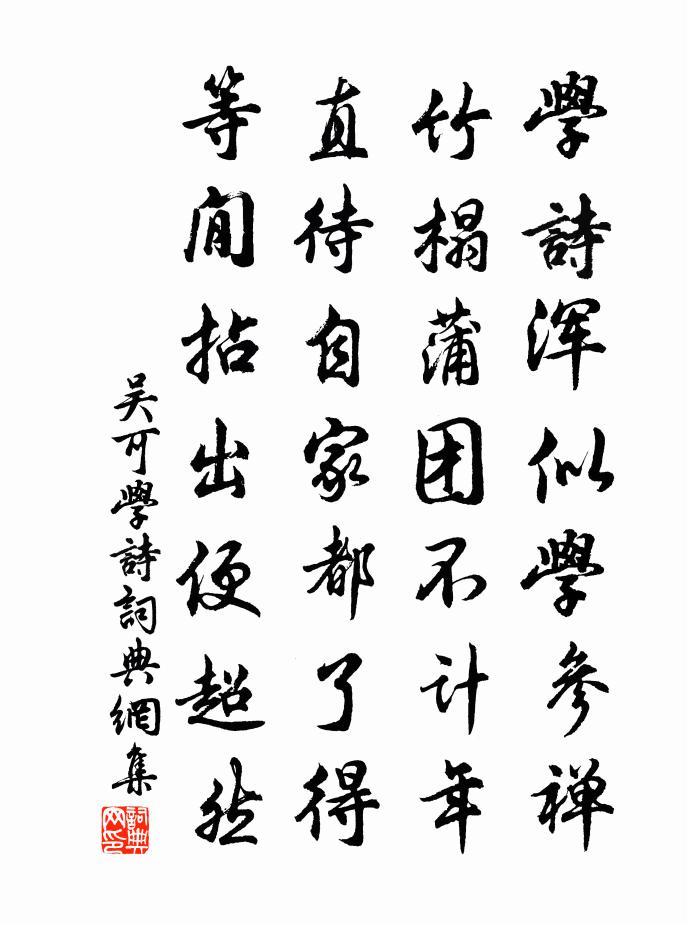 學詩浑似學参禅
竹榻蒲团不计年
直待自家都了得
等闲拈出便超然
吴可學詩詞典網集
詞典网印